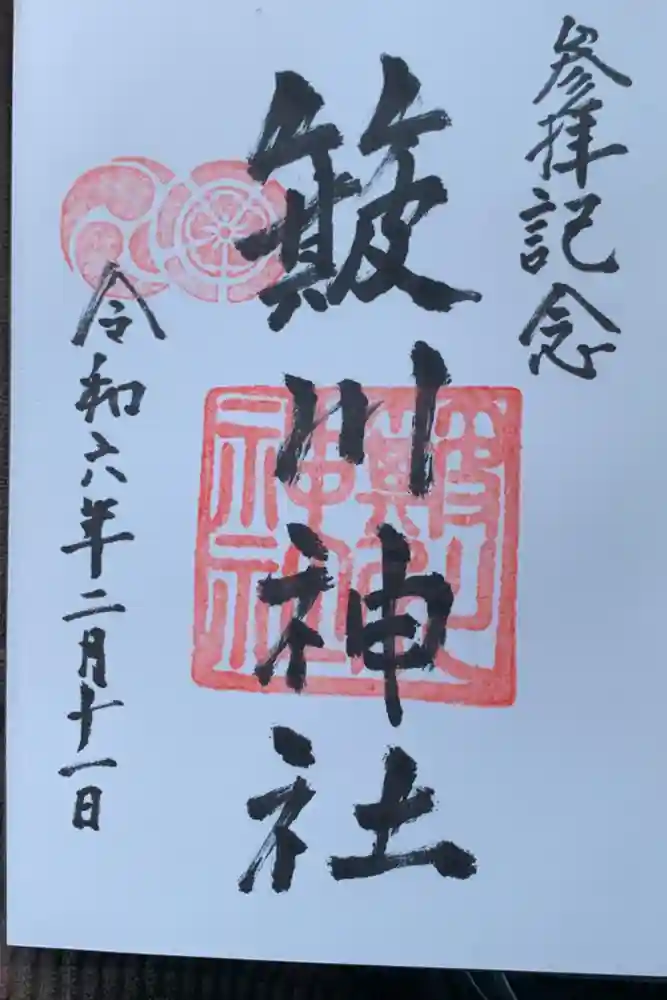 参拝記念
簸川神社
令和六年二月十一日